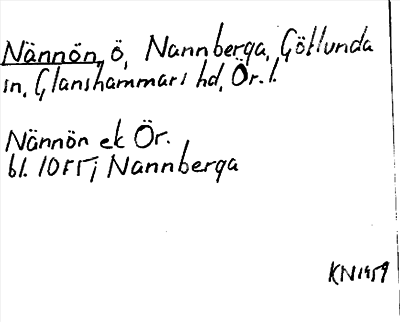 Nännön, ö, Nannberga, Götlunda
sn, Glanshammars hd, Ör. l.
Nännön ek Ör.
bl. 10FF1j Nannberga
KN1959